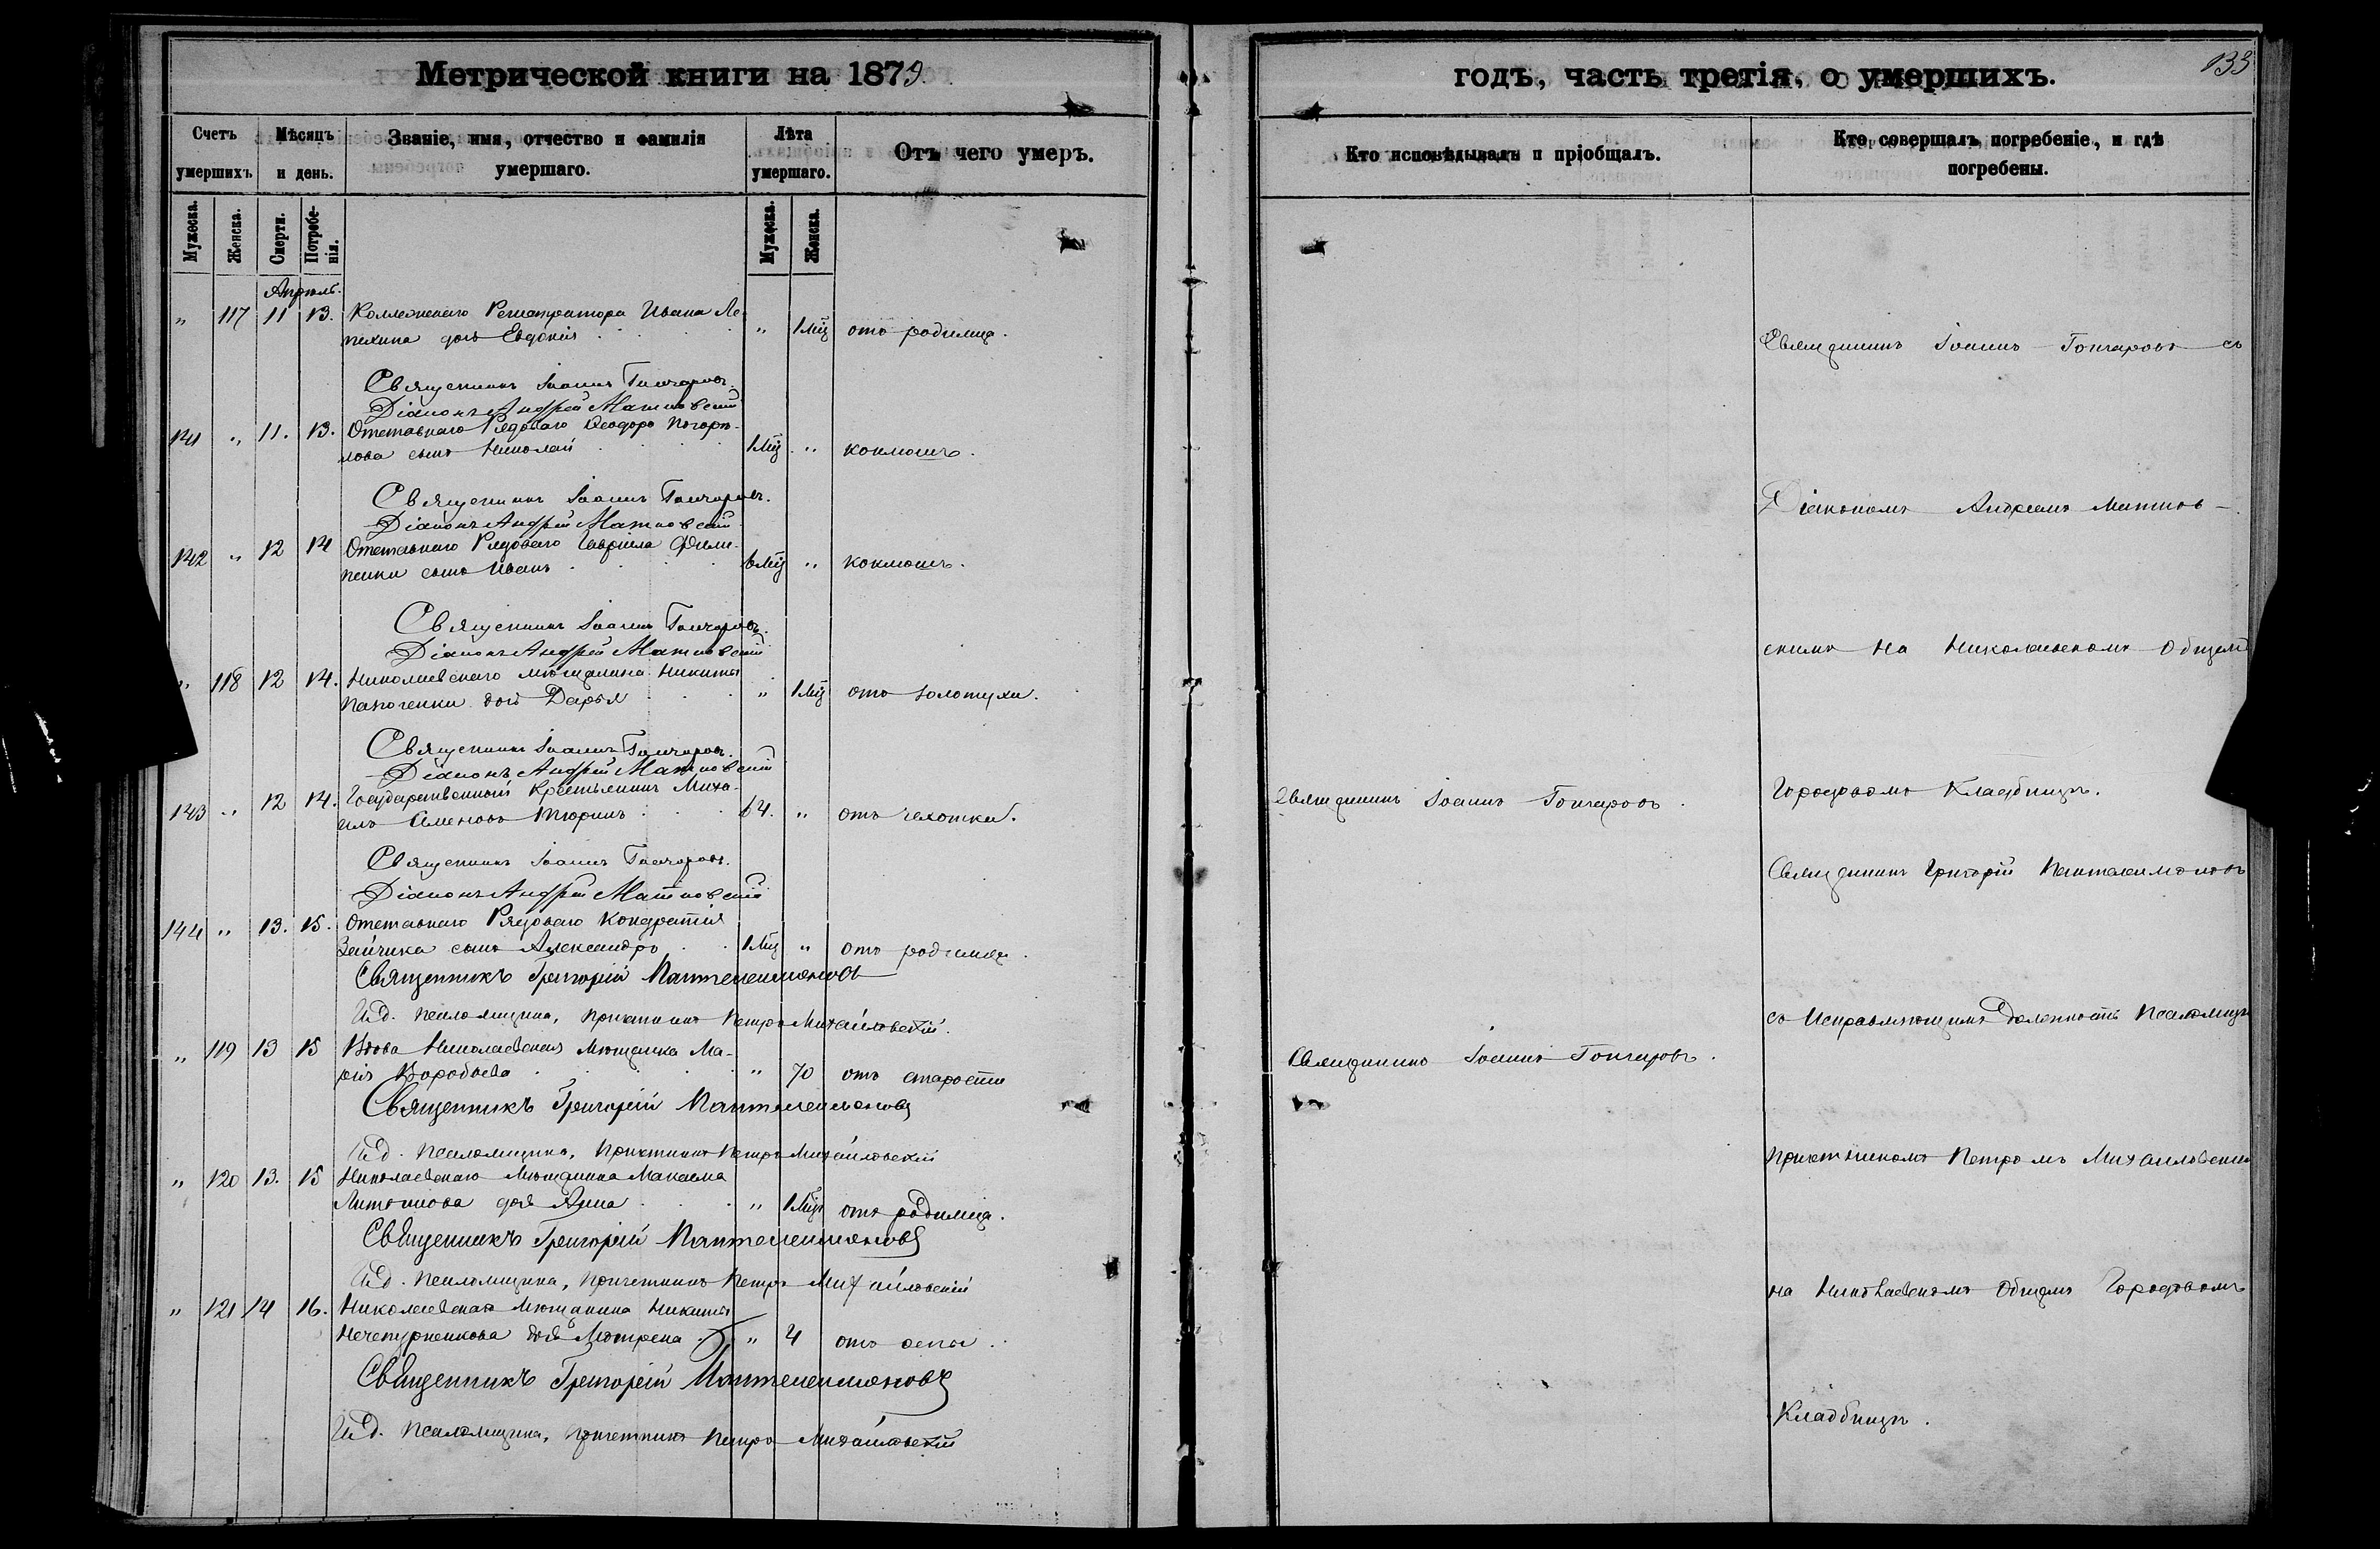 Метрической книги на 1879
Счетъ умершихъ.
Мѣсяцъ и день.
Званіе, имя, отчество и фамилія умершаго.
Лѣта умершаго.
Отъ чего умеръ.
Мужеска. Женска. Смерти. Погребенія. Мужеска. Женска.
Апрѣль.
" 117 11 13. Коллежскаго Регистратора Ивана Ле-
пехина дочь Евдокія " 1 мѣц отъ родимца.
Священникъ Іоаннъ Гончаровъ.
Діаконъ Андрей Матковскій
141 " 11. 13. Отставнаго Рядоваго Ѳеодора Погорѣ-
лова сынъ Николай 1 мѣц " коклюшъ.
Священникъ Іоаннъ Гончаровъ.
Діаконъ Андрей Матковскій
142 " 12 14 Отставнаго Рядоваго Гавріила Фили-
пенки сынъ Иванъ 6 мѣц " коклюшъ.
Священникъ Іоаннъ Гончаровъ.
Діаконъ Андрей Матковскій
" 118 12 14. Николаевскаго мѣщанина Никиты
дочь Дарья " 1 мѣц отъ золотухи.
Священникъ Іоаннъ Гончаровъ.
Діаконъ Андрей Матковскій
143 " 12 14. Государственный Крестьянинъ Миха-
илъ Семеновъ Тюринъ 64. " отъ чахотки.
Священникъ Іоаннъ Гончаровъ.
Діаконъ Андрей Матковскій
144 " 13. 15. Отставнаго Рядоваго Кондратія
Зайчика сынъ Александръ 1 мѣц " отъ родимца.
Священникъ Григорій Пантелеимоновъ
И. д. псаломщика, причетникъ Петръ Михайловскій.
" 119 13 15 Вдова Николаевская мѣщанка Ма-
рія Воробьева " 70 отъ старости
Священникъ Григорій Пантелеимоновъ
И. д. псаломщика, причетникъ Петръ Михайловскій
" 120 13. 15 Николаевскаго мѣщанина Максима
дочь Анна " 1 мѣц отъ родимца.
Священникъ Григорій Пантелеимоновъ
И. д. псаломщика, причетникъ Петръ Михайловскій
" 121 14 16. Николаевскаго мѣщанина Никиты
дочь " 4 отъ оспы.
Священникъ Григорій Пантелеимоновъ
И. д. псаломщика, причетникъ Петръ Михайловскій
годъ, часть третія, о умершихъ.
133
Кто исповѣдывалъ и пріобщалъ.
Кто совершалъ погребеніе, и гдѣ
погребены.
Священникъ Іоаннъ Гончаровъ съ
Діакономъ Андреемъ Матков-
скимъ на Николаевскомъ Общемъ
Священникъ Іоаннъ Гончаровъ.
Городовомъ Кладбищѣ.
Священникъ Григорій Пантелеимоновъ
съ Исправляющимъ Должность Псаломщика
Священникъ Іоаннъ Гончаровъ.
Причетникомъ Петромъ Михайловскимъ
на Николаевскомъ Общемъ Городовомъ
Кладбищѣ.